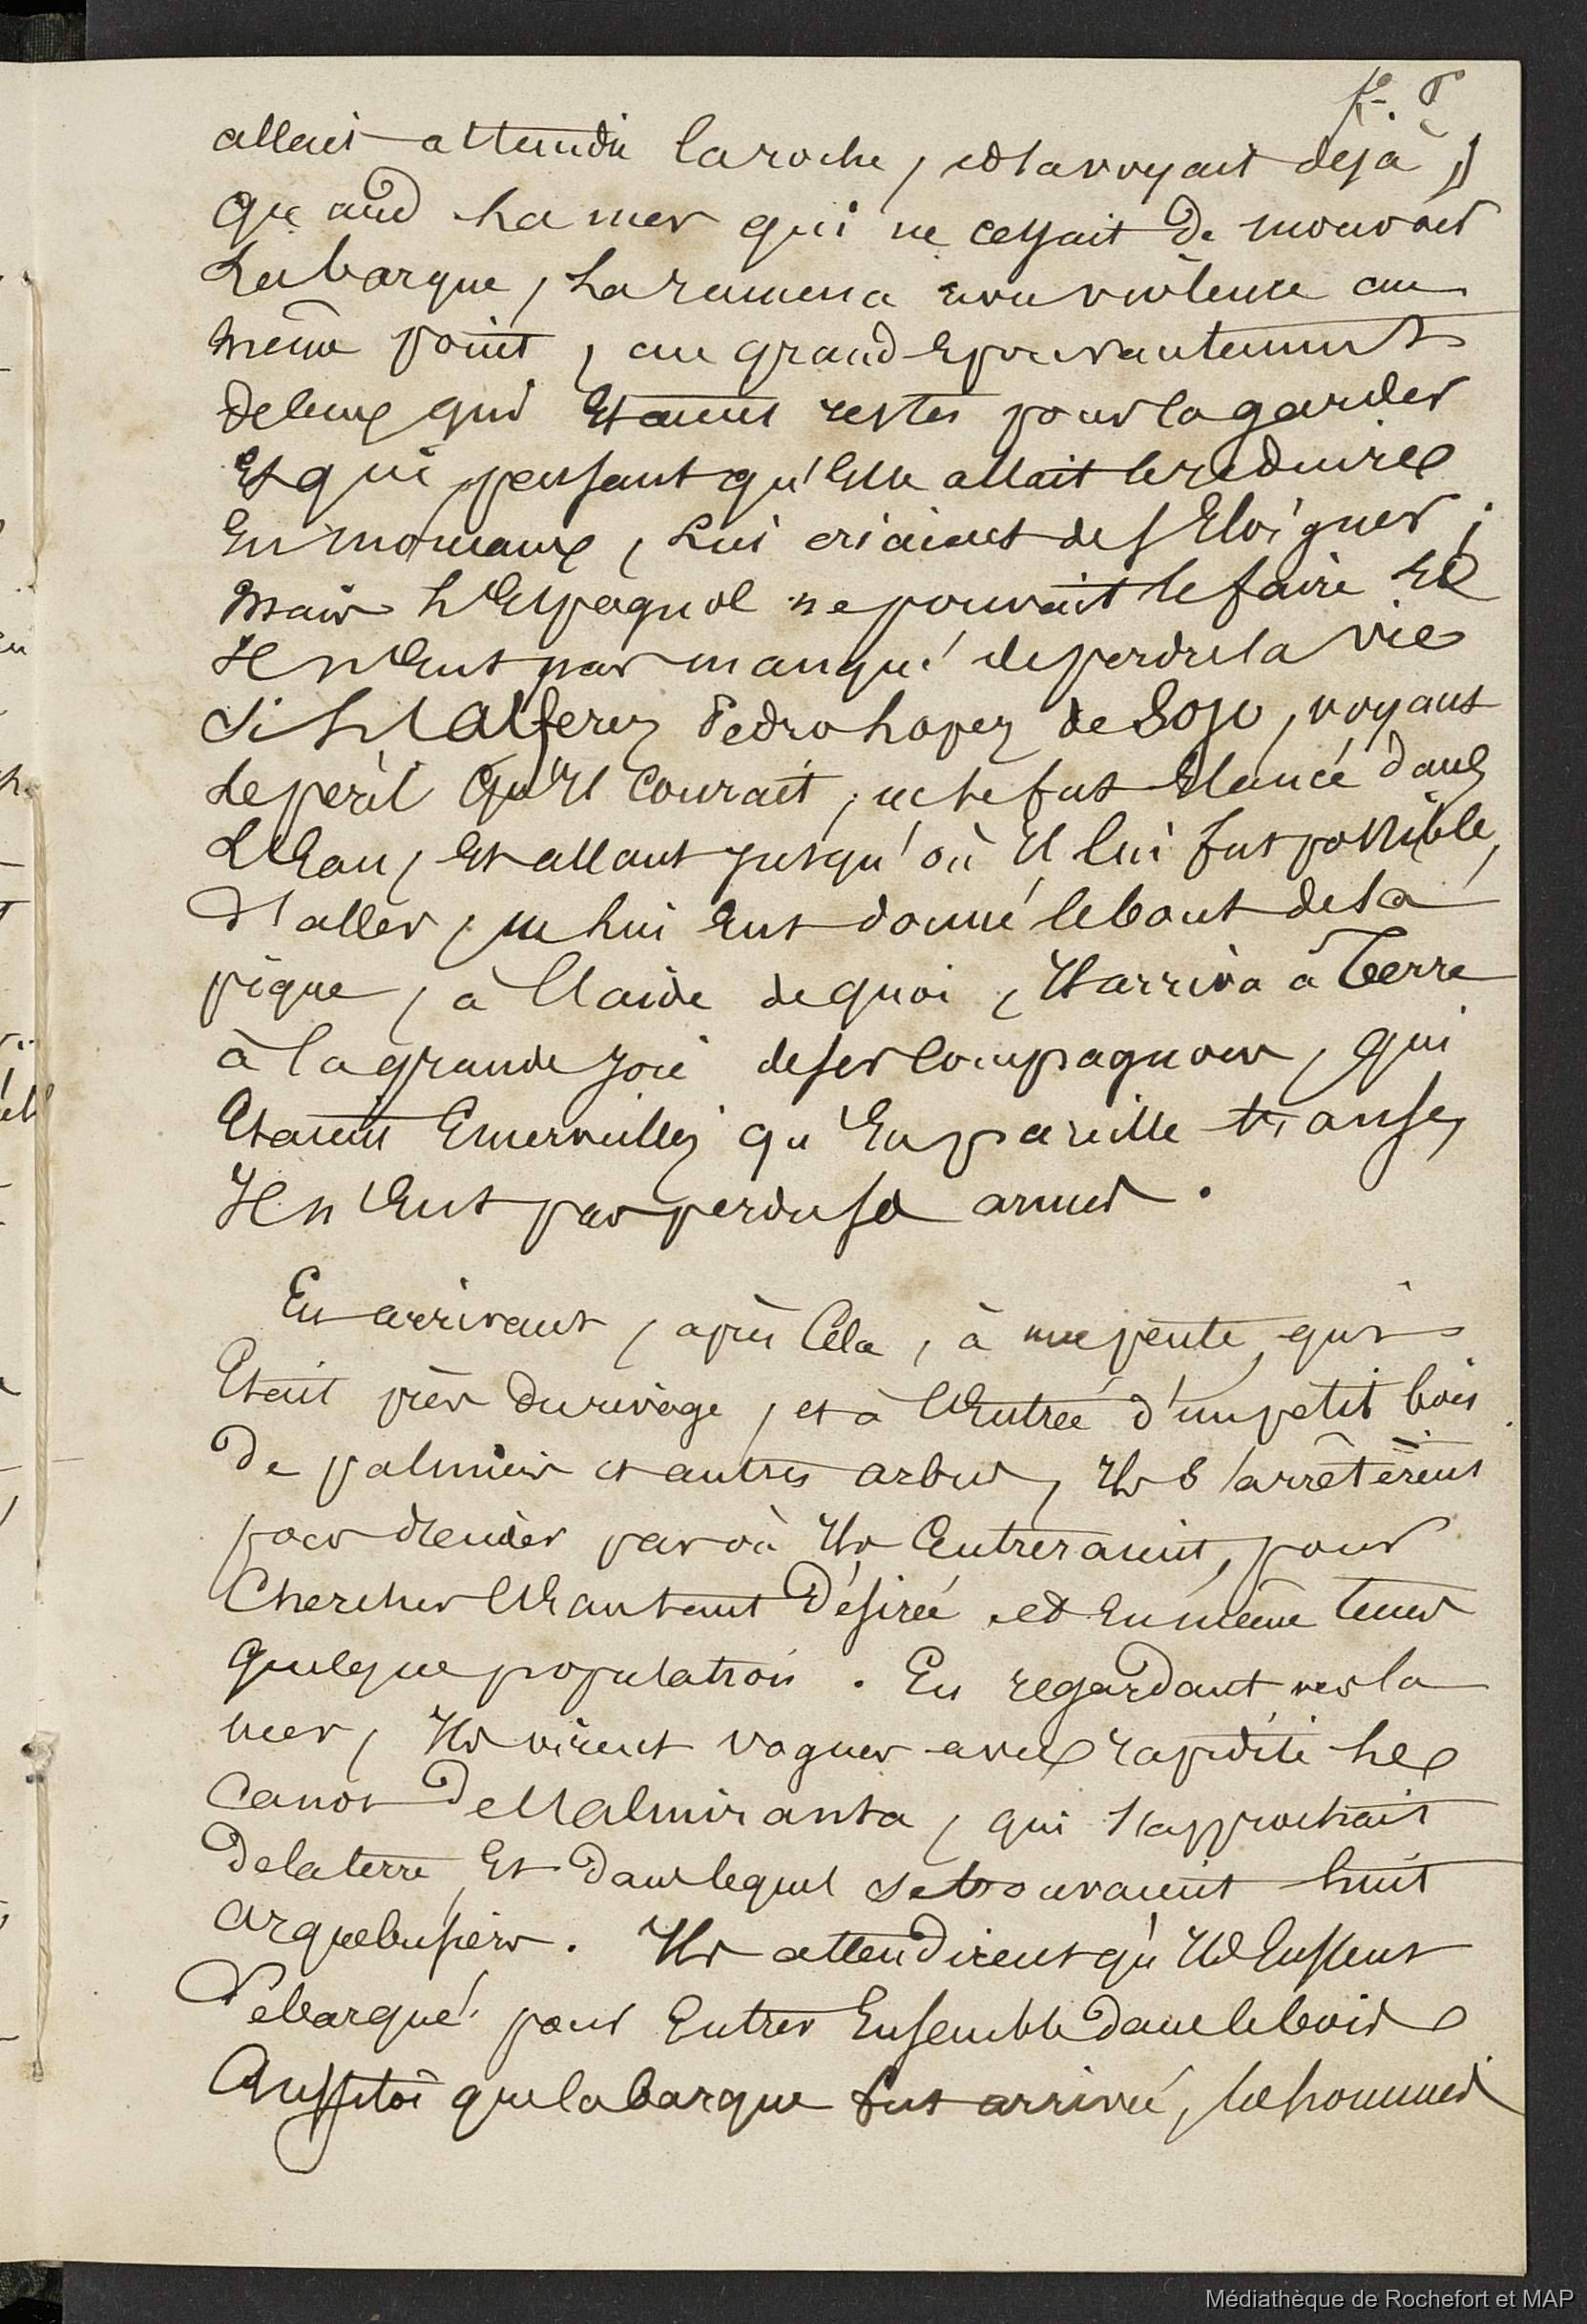 allait atteindre la roche, et la voyait déjà,
quand la mer qui ne cessait de mouvoir
la barque, la ramena avec violence au
même point, au grand epouvantement
de ceux qui etaient restés pour la garder
Et qui pensant qu'Elle allait les reduire
En morceaux, lui criaient de s'Eloigner ;
mais l'Espagnol ne pouvait le faire Et
Il n'Eut pas manqué de perdre la vie
si l'Alferez Pedro Lopez de Sojo, voyant
le péril qu'Il courait, ne se fut Elancé dans
L'Eau, Et allant jusqu'où Il lui fut possible,
d'aller, ne lui Eut donné le bout de sa
pique, à l'aide de quoi, Il arriva à Terre
à la grande joie de ses Compagnons, qui
Etaient Emerveillés qu'En pareille transe,
Il n'Eut pas perdu ses armes.
En arrivant, après Cela, à une pente, qui
Etait près du rivage, et à l'Entrée d'un petit bois
De palmiers et autres arbres, Ils s'arrêtèrent
pour decider par où Ils Entreraient, pour
Chercher l'Eau tant Désirée et En même temps
quelque population. En regardant vers la
mer, Ils virent voguer avec rapidité le
Canot De l'Almiranta, qui s'approchait
De la terre, Et Dans lequel se trouvaient huit
arquebusiers. Ils attendirent qu'Ils Eussent
Débarqué pour Entrer Ensemble Dans le bois
Aussitôt que la barque fut arrivée, les hommes
Médiathèque de Rochefort et MAP